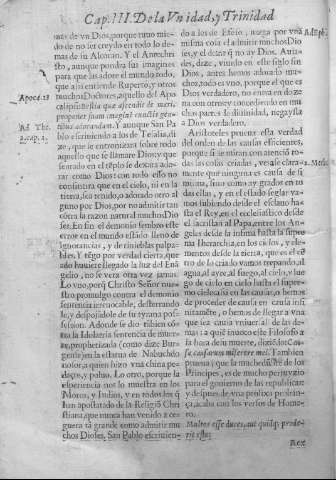 Cap. III. De la Vnidad, y Trinidad
mas de vn Dios, porque tuuo mie-
do de no ser creydo en todo lo de-
mas de su Alcoran. Y el Antechri-
sto, aunque pondra sus imagines
para que las adore el mundo todo,
que assi entiende Ruperto, y otros
muchos Doctores, aquello del Apo-
Apoca.13
nes adorandam. Y aunque San Pa-
blo escriuiendo a los de Tesalia, di-
Ad Thes.
2.cap.2.
ze, que se entronizara sobre todo
aquello que se llamare Dios, y que
sentado en el templo se dexara ado-
rar como Dios: con todo esso no
consentira que en el cielo, ni en la
tierra, sea temido, o adorado otro al
guno por Dios, por no admitir tan
côtra la razon natural muchos Dio
ses. En fin el demonio sembro este
error en el mundo estãdo lleno de
ignorancias, y de tinieblas palpa-
bles. Y tẽgo por verdad cierta, que
ado huuiere llegado la luz del Euã
gelio, no se vera otra vez jamas.
Lo vno, porq̃ Christo Señor nue-
stro promulgo contra el demonio
sentencia irreuocable, desterrando-
le, y despojãdole de su tyrana pos-
session. Adonde se dio tãbien côn-
tra la Idolatria sentencia de muer-
te, prophetizada (como dize Bur-
gense) en la statua de Nabuchdo
nosor, a quien hizo vna china pe-
daços, y poluo. Lo otro, porque la
esperiencia nos lo muestra en los
Moros, y Indios, y en todos los q̃
han apostatado de la Religiõ Chri
stiana, que nunca han venido a ce-
guera tã grande como admitir mu
chos Dioses. San Pablo escriuien-
do a los de Efeso, niega por vna
misma cosa el admitir muchos Dio
ses, y el dezir q̃ no ay Dios. Atrẽ-
Ad Eph.
ded, dize, viuido en este siglo sin
Dios, antes hemos adorado mu-
chos, todo es vno, porque el que es
Dios verdadero, no entra en doze-
na con otros; y concediendo en mu
chos partes la diuinidad, niegase la
a Dios verdadero.
Aristoteles prueua esta verdad
del orden de las causas eficientes,
porque si se miran con atenciõ to-
das las cosas criadas, vease clara-
2. Met.
mente que ninguna es causa de si
misma, sino como ay grados en to
das ellas, y en el estado seglar va-
mos subiendo desde el esclauo ha-
sta el Rey, en el ecclesiastico desde
el sacristan al Papa, entre los An-
geles desde la infima hasta la supre
ma Ierarchia, en los cielos, y ele-
mentos desde la tierra, que es el cẽ
tro de lo criado vamos trepando, al
agua, al ayre, al fuego, al cielo, y lue
go de cielo en cielo hasta el supre-
mo cielo: assi en las causas, o hemos
de proceder de causa en causa infi
nitamẽte, o hemos de llegar a vna
que sea causa vniuersal de las de-
mas: a quiẽ inuoco este Filosofo a
la hora de su muerte, diziẽdo: Cau
sa causarum miserere mei. Tambien
prueua que la muchedũbre de los
Principes, es de mucho perjuyzio
para el gouierno de las republicas:
y despues de vna prolixa proban-
ça, acaba con los versos de Home-
ro.